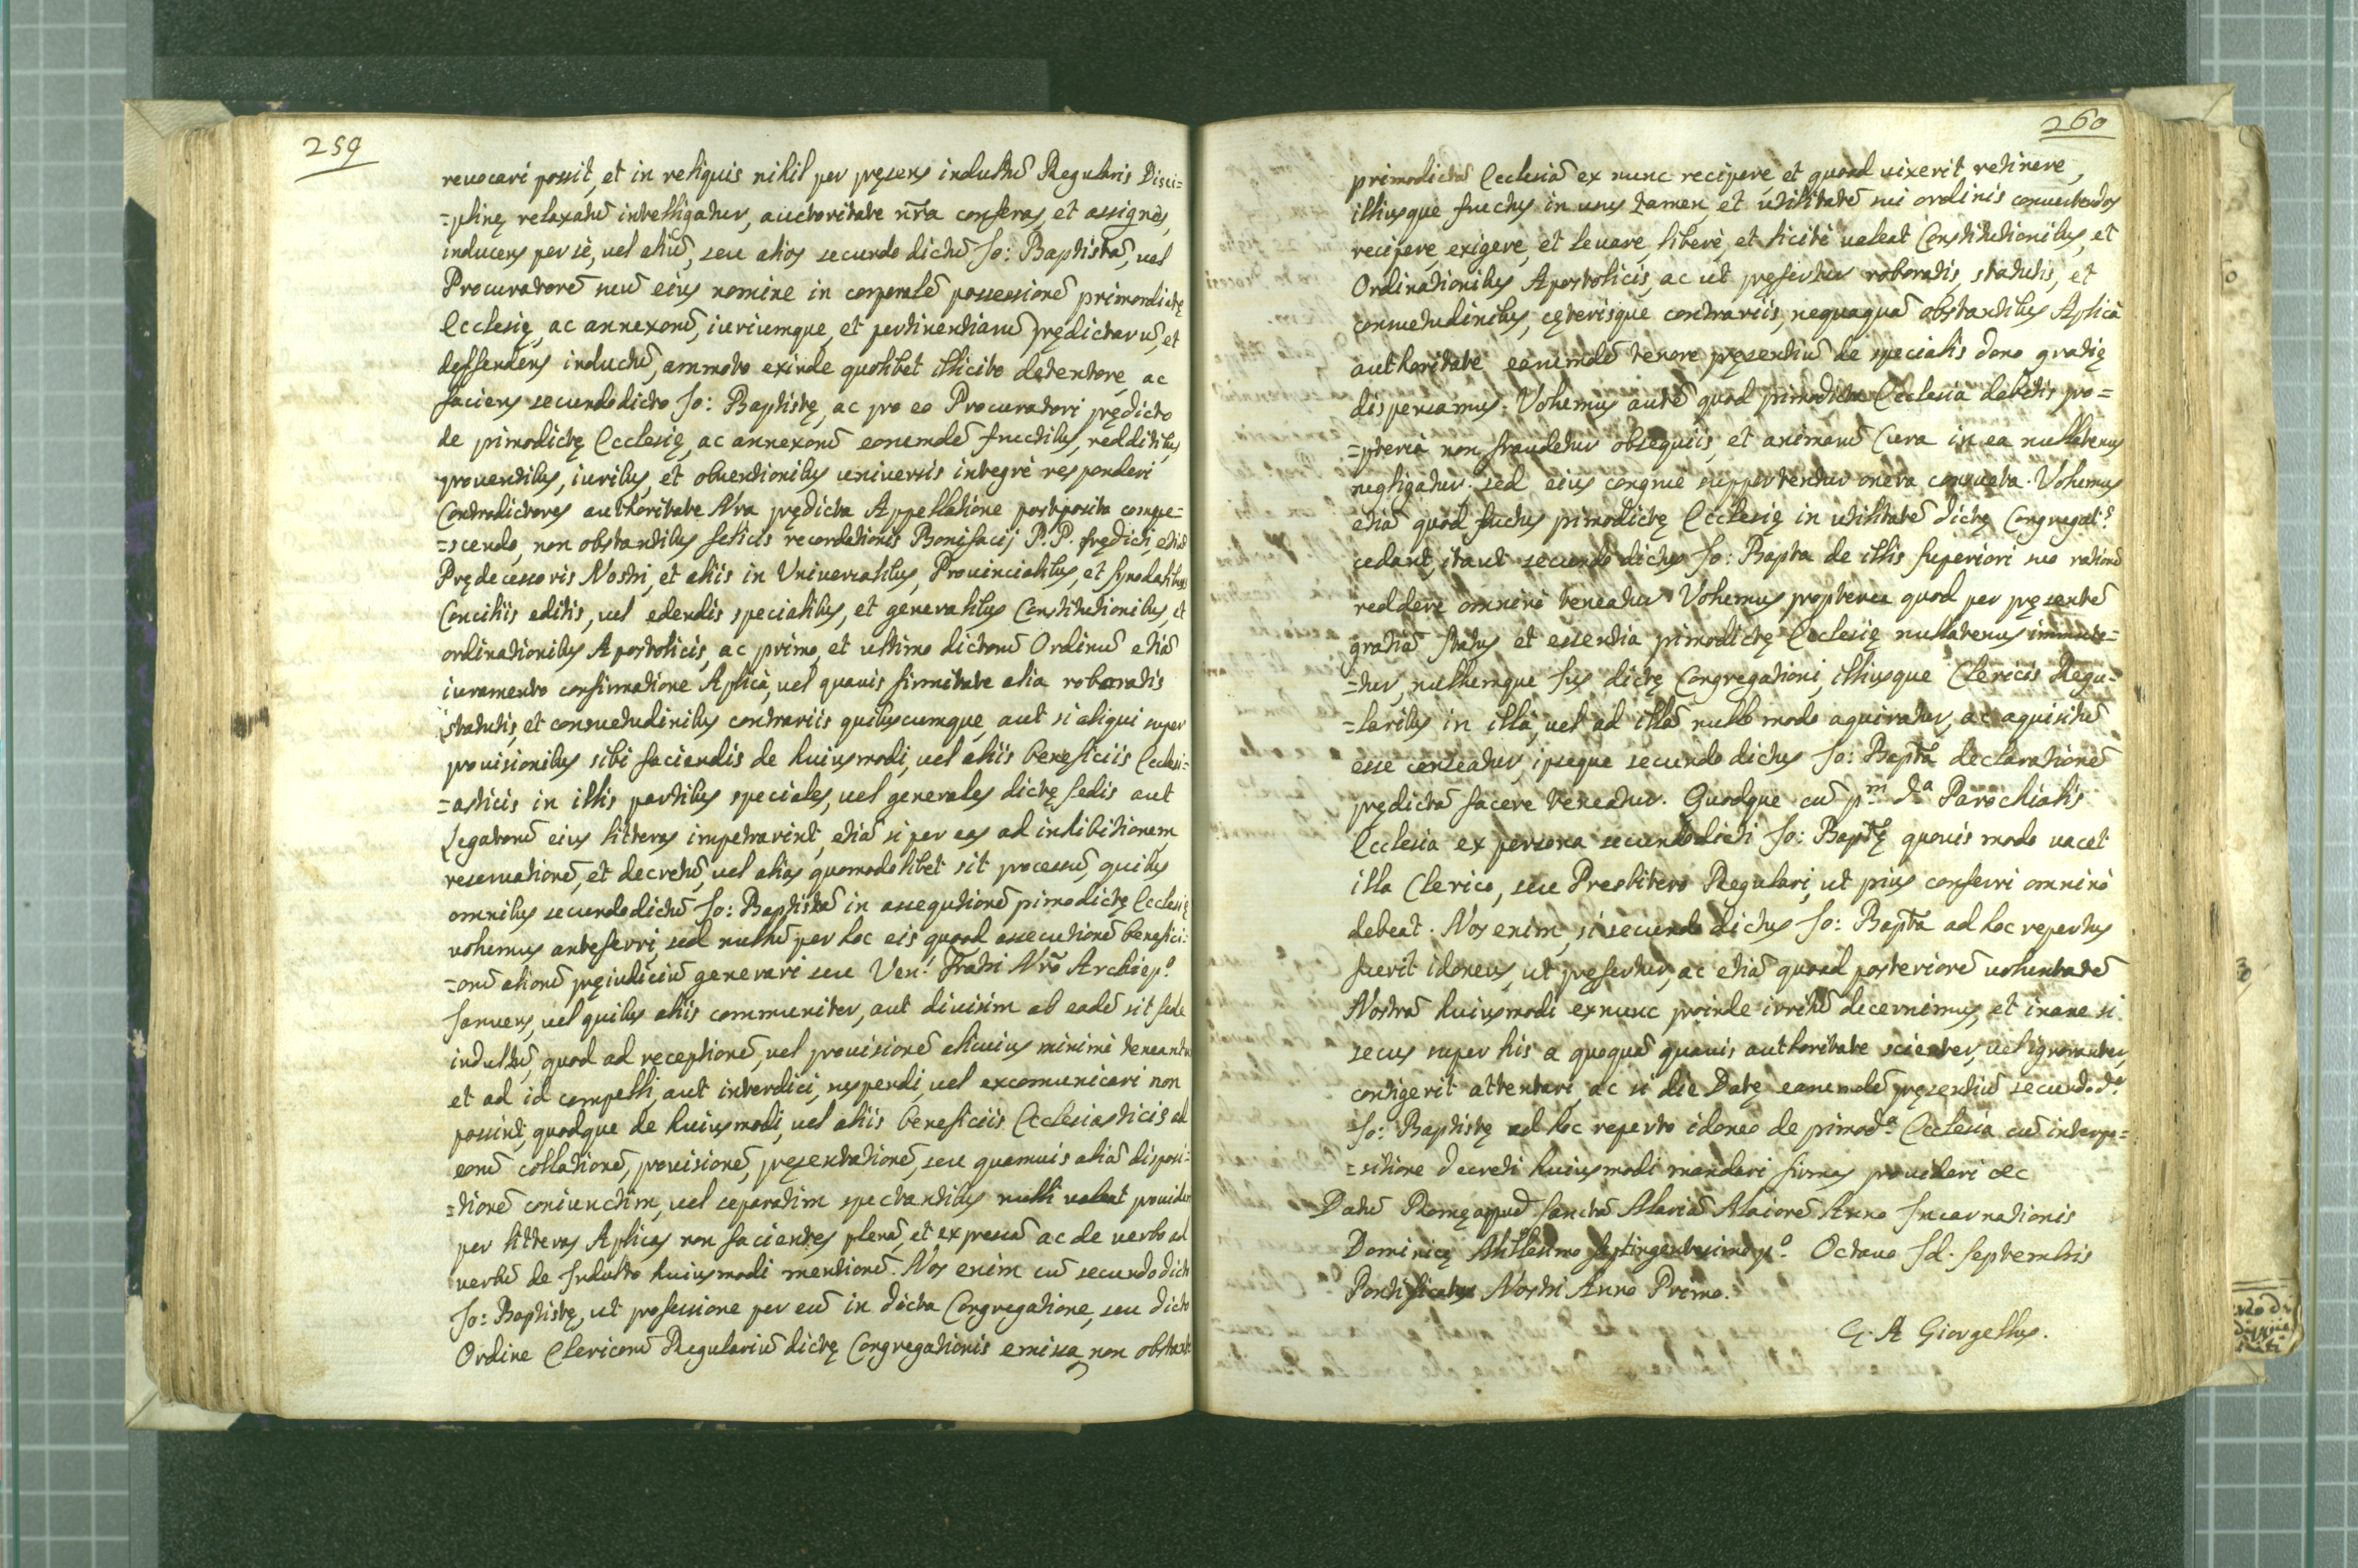 259
reuocari possit, et in reliquis nihil per pręsens indultū Regularis Disci=
=plinę relaxatū intelligatur, auctoritate nr̄a conferas, et assignes,
inducens per se, uel aliū, seu alios secundo dictū Jo: Baptistā, uel
Procuratorē suū eius nomine in corporalē possessionē primordictę
Ecclesię, ac annexorū, iuriumque, et pertinentiarū prędictarū, et
deffendens inductū, ammoto exinde quolibet illicito detentore, ac
faciens secundodicto Jo: Baptistę, ac pro eo Procuratori prędicto
de primodictę Ecclesię, ac annexorū eorumdē fructibus, redditibus
prouentibus, iuribus, et obuentionibus uniuersis integrè responderi
Contradictores authoritate Nr̄a prędicta Appellatione postposita compe=
=scendo, non obstantibus felicis recordationis Bonifacij P.P. prędicti, etiā
Prędecessoris Nostri, et aliis in Uniuersalibus, Prouincialibus, et Synodalibus
Conciliis editis, uel edendis specialibus, et generalibus Constitutionibus, et
ordinationibus Apostolicis, ac primo, et ultimo dictorū Ordinū etiā
iuramento confirmatione Aplicà, uel quauis firmitate alia roboratis
statutis, et consuetudinibus contrariis quibuscumque, aut si aliqui super
prouisionibus sibi faciendis de huiusmodi, uel aliis beneficiis Ecclesi=
=asticis in illis partibus speciales, uel generales dictę Sedis aut
Legatorū eius litteras impetrarint, etiā si per eas ad inhibitionem
reseruationē, et decretū, uel alias quomodolibet sit processū, quibus
omnibus secundodictū Jo: Baptistā in assequtionē pimodictę Ecclesię
uolumus anteferri, sed nullū per hoc eis quoad assecutionē benefici=
=orū aliorū pręiudiciū generari seu Ven.ⁱ Fratri Nrō Archiep.º
Januens, uel quibus aliis communiter, aut diuisim ab eadē sit sede
indultū, quod ad receptionē, uel prouisionē alicuius minimè teneantur
et ad id compelli, aut interdici, suspendi, uel excomunicari non
possint, quodque de huiusmodi, uel aliis beneficiis Ecclesiasticis ad
eorū collationē, prouisionē, pręsentationē, seu quamuis aliā disposi=
=tionē coniunctim, uel separatim spectantibus nulli ualeat prouideri
per litteras Aplicas non facientes plenā, et expressā ac de uerbo ad
uerbū de Indulto huiusmodi mentionē. Nos enim cū secundodicto
Jo: Baptistę, ut professione per eū in dicta Congregatione, seu dicto
Ordine Clericorū Regulariū dictę Congregationis emissa non obstante
260
primodictā Ecclesiā ex nunc recipere, et quoad uixerit retinere,
illiusque fructus in usus tamen, et utilitatē sui ordinis conuertendos
recipere, exigere, et leuare, liberè, et licitè ualeat Constitutionibus, et
Ordinationibus Apostolicis, ac ut pręfertur roboratis, statutis, et
consuetudinibus, cęterisque contrariis, nequaquā obstantibus Aplicà
authoritate earumdē tenore pręsentiū de specialis dono gratię
dispensamus. Volumus autē quod primodicta Ecclesia debitis pro=
=pterea non fraudetur obsequiis, et animarū Cura in ea nullatenus
negligatur. sed eius congruè supportentur onera consueta. Volumus
etiā quod fructus pimodictę Ecclesię in utilitatē dictę Congregat.ˢ
cedant, itaut secundo dictus Jo: Bapta de illis Superiori suo rationē
reddere omninò teneatur Volumus propterea quod per pręsentē
gratiā status et essentia pimodictę Ecclesię nullatenus immute=
=tur, nullumque Jus dictę Congregationi, illiusque Clericis Regu=
=laribus in illa, uel ad illā nullo modo aquiratur, ac aquisitū
esse censeatur, ipseque secundo dictus Jo: Bapt̄a declarationē
prędictā facere teneatur. Quodque cū pᵐ d.ᵃ Parochialis
Ecclesia ex persona secundodicti Jo: Bapt̄ę quouis modo uacet
illa Clerico, seu Presbitero Regulari, ut pius conferri omninò
debeat. Nos enim, si secundo dictus Jo: Bapt̄a ad hoc repertus
fuerit idoneus, ut pręfertur, ac etiā quoad posteriorē uoluntatē
Nostrā huiusmodi exnunc proinde irritū decernimus, et inane si
secus super his a quoquā quauis authoritate scienter, uel ignoranter,
contigerit attentari, ac si die Datę earumdē pręsentiū secundod.º
Jo: Baptistę ad hoc reperto idoneo de pimod.ᵃ Ecclesia cū interpo=
=sitione decreti huiusmodi mandari firmas prouideri &c
Datū Romę apud Sanctā Mariā Maiorē Anno Incarnationis
Dominicę Millesimo septingentesimo p.º Octauo Id. Septembris
Pontificatus Nostri Anno Primo.
G. A Giorgellus.